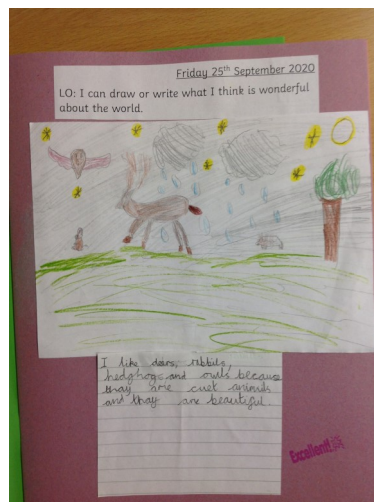 Friday 25th September 2020
LO: I can draw or write what I think is wonderful
about the world.
I like deers, rabbits,
hedghogs and owls because
thay are cuet animals
and thay are beautiful.
Excellent!